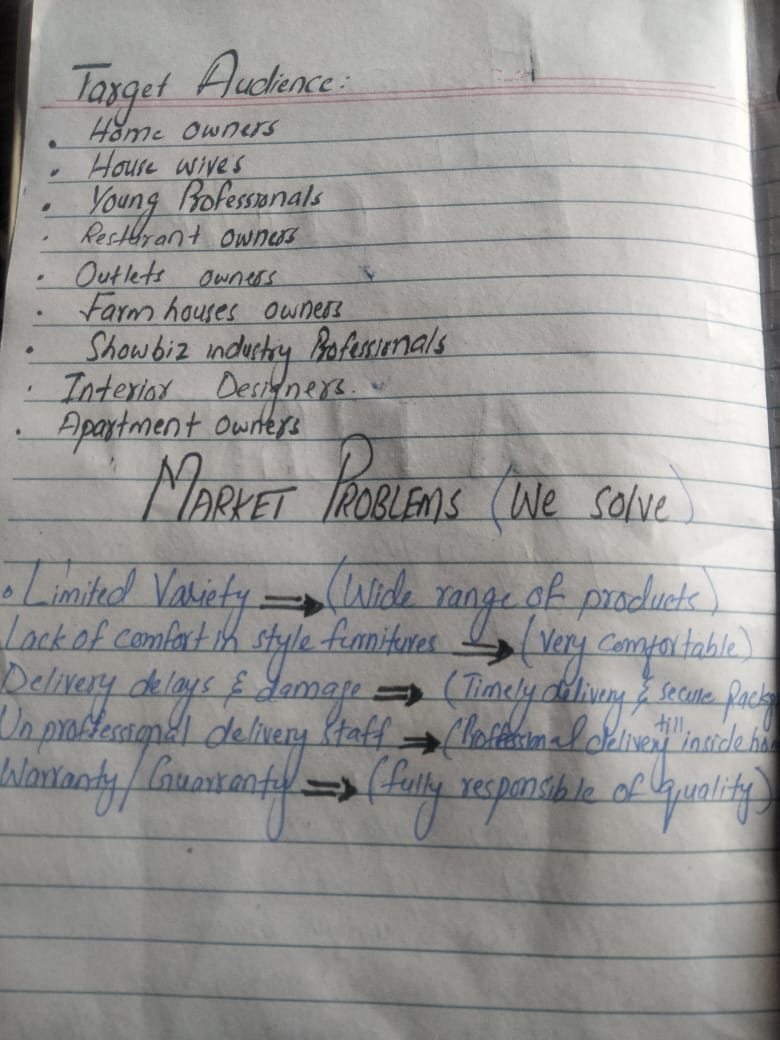 Target Audience:
• Home owners
• House wives
• Young Professionals
• Resturant owners
• Outlets owners
• Farm houses owners
• Showbiz industry Professionals
• Interior Designers.
• Apartment owners
MARKET PROBLEMS (We solve)
• Limited Variety ⇒ (Wide range of products)
Lack of comfort in style furnitures ⇒ (Very comfortable)
Delivery delays & damage ⇒ (Timely delivery & secure
Un proffessional delivery staff ⇒ (Professional delivery till inside
Warranty/Guarranty ⇒ (fully responsible of quality)